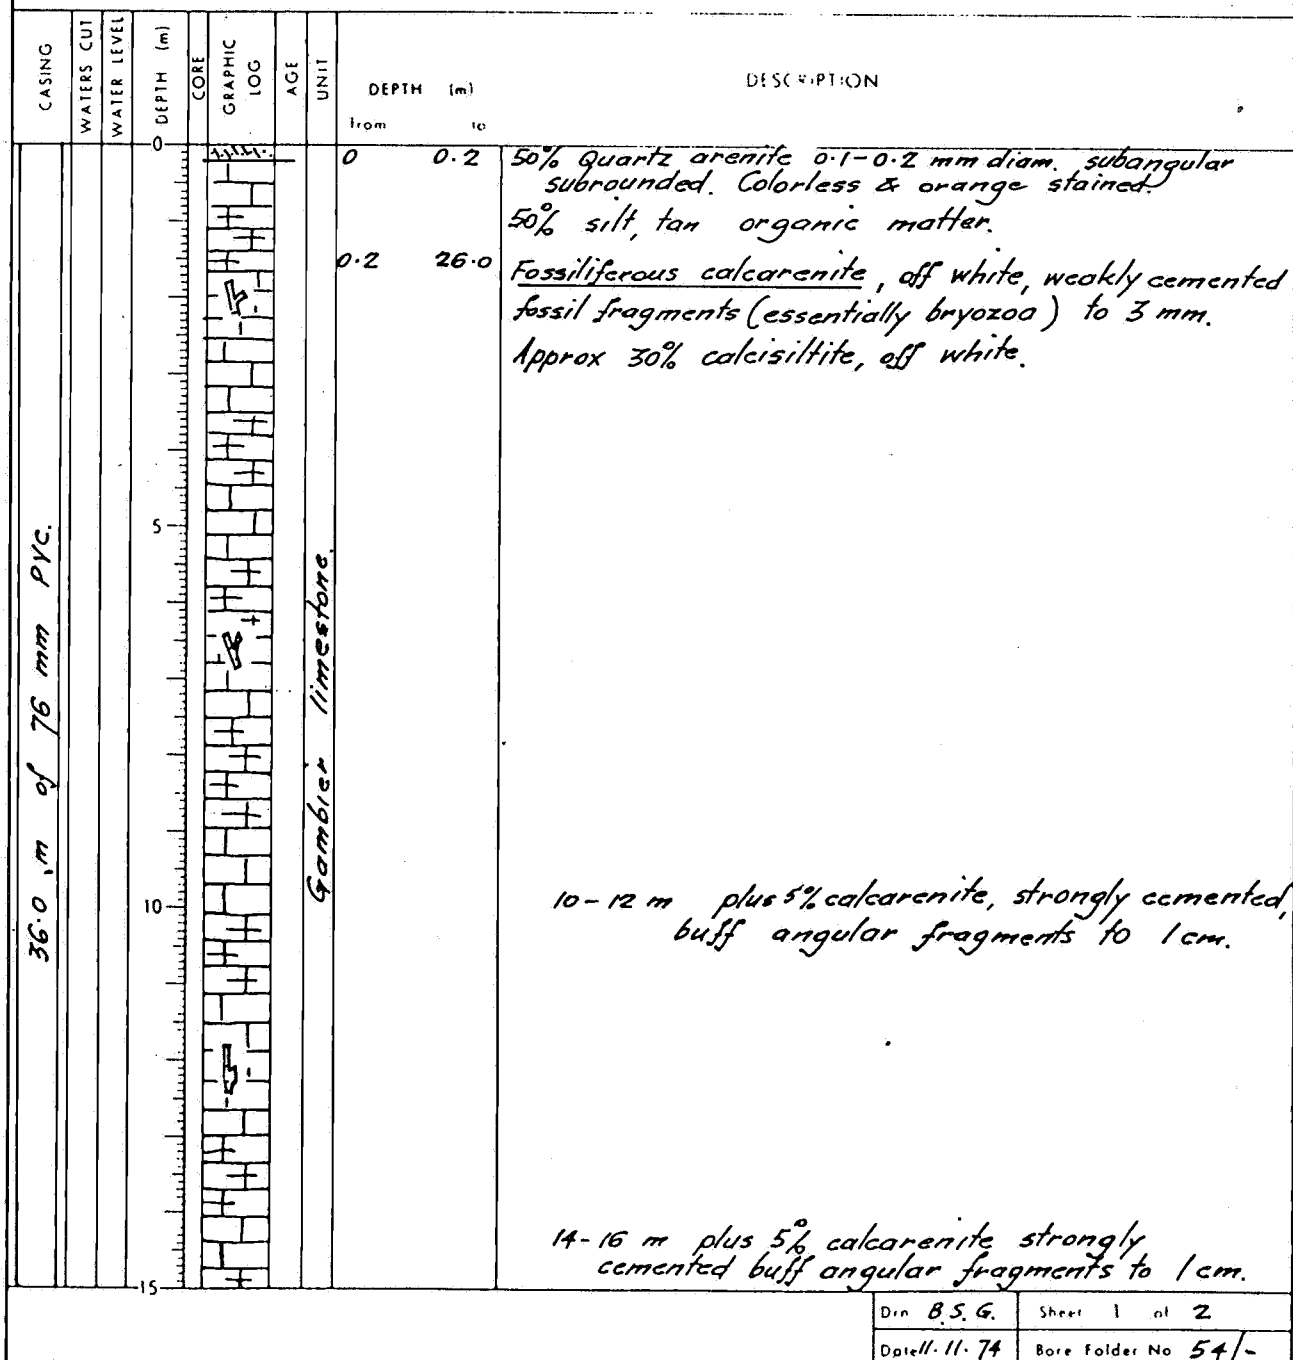 CASING
WATERS CUT
WATER LEVEL
DEPTH (m)
CORE
GRAPHIC LOG
AGE
UNIT
DEPTH (m)
from to
DESCRIPTION
0
0 0.2 50% Quartz arenite 0.1-0.2 mm diam. subangular
subrounded. Colorless & orange stained.
50% silt, tan organic matter.
0.2 26.0 Fossiliferous calcarenite, off white, weakly cemented
fossil fragments (essentially bryozoa) to 3 mm.
Approx 30% calcisiltite, off white.
5
36.0 m of 76 mm PVC.
Gambier limestone.
10
10-12 m plus 5% calcarenite, strongly cemented,
buff angular fragments to 1 cm.
14-16 m plus 5% calcarenite strongly
cemented buff angular fragments to 1 cm.
15
Drn B.S.G. Sheet 1 of 2
Date 11.11.74 Bore Folder No 54/-